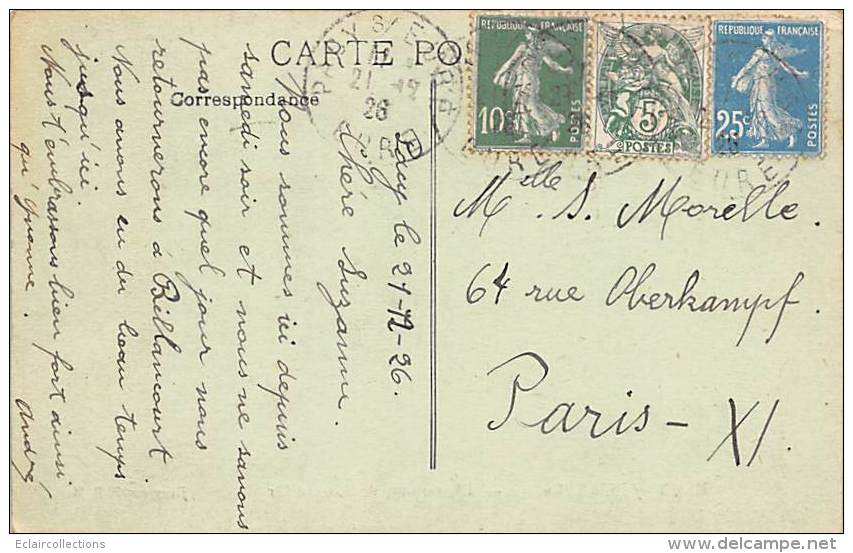 CARTE POS
Correspondance
PACY S/ EURE
21 -12
26
EURE
REPUBLIQUE FRANÇAISE
10c
POSTES
5c
POSTES
REPUBLIQUE FRANÇAISE
25c
POSTES
Pacy le 21-12-26.
Chère Suzanne.
Nous sommes ici depuis
samedi soir et nous ne savons
pas encore quel jour nous
retournerons à Billancourt
Nous avons eu du beau temps
jusqu'ici.
Nous t'embrassons bien fort ainsi
qu'Yvonne. André
Melle S. Morelle.
64 rue Oberkampf.
Paris - XI.
Eclaircollections
delcampe.net